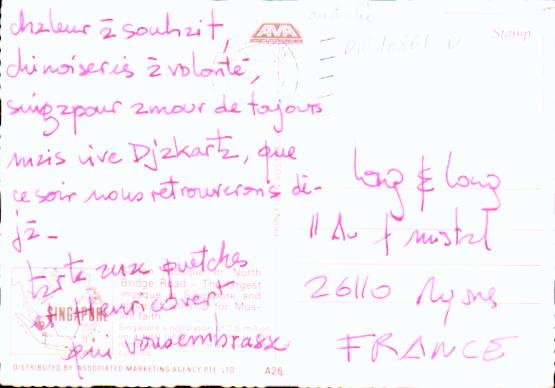 chaleur à souhait,
chinoiseries à volonté,
singapour amour de toujours
mais vive Djakarta, que
ce soir nous retrouverons dé-
jà -
tarte aux quetches
et fleur
qui vous embrasse
AMA
Stamp
Long & Long
11 Av F mistral
26110 Nyons
FRANCE
North
Bridge Road - The largest
and
for Mus-
SINGAPORE
Singapore's population of 2.5 million
DISTRIBUTED BY ASSOCIATED MARKETING AGENCY PTE. LTD. A26